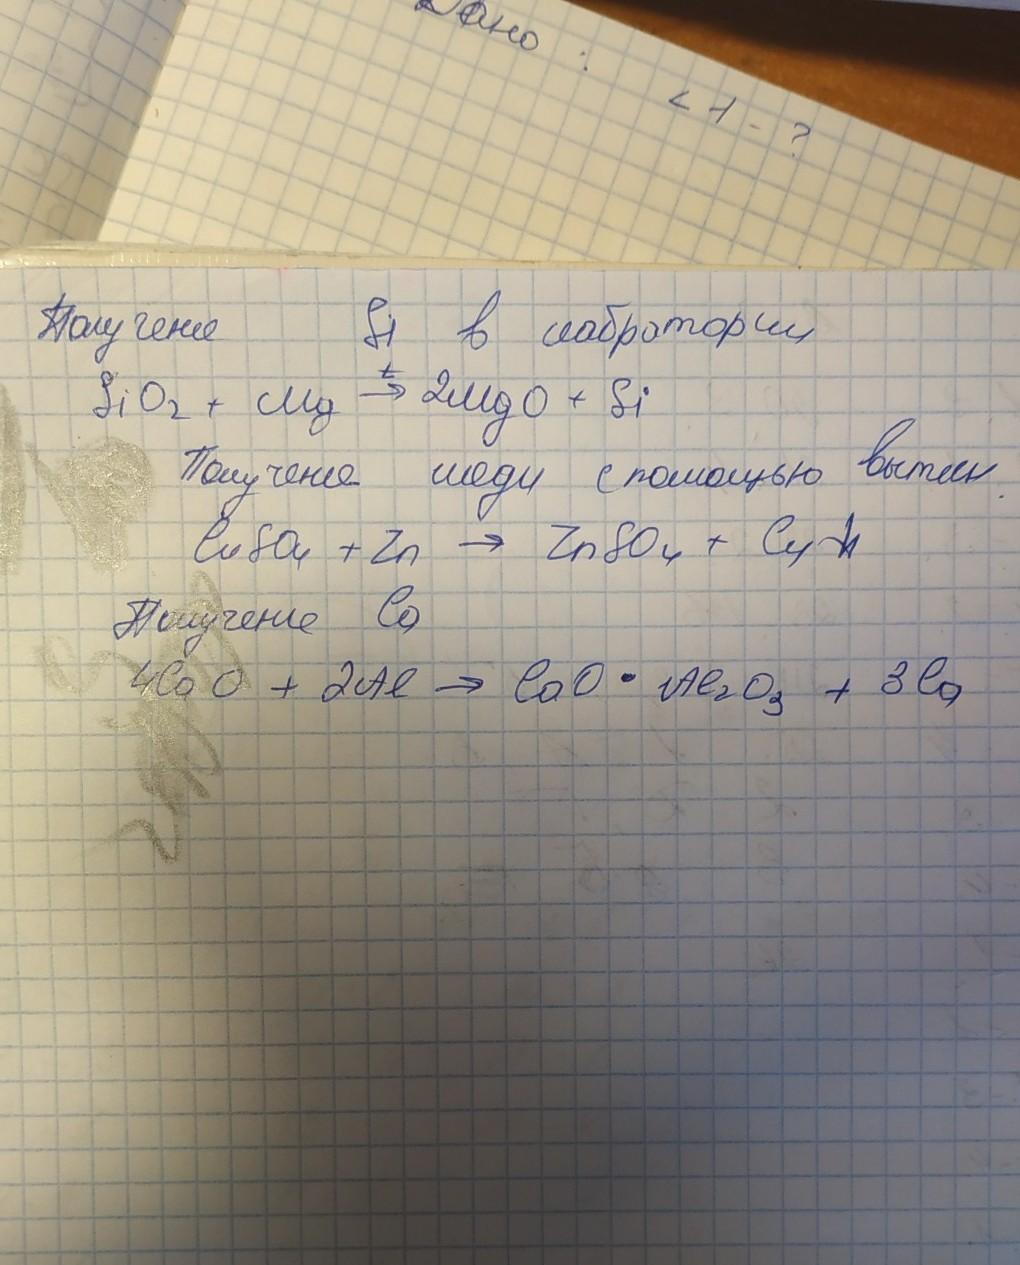 Дано :
< 1 - ?
Получение Si в лабротории
SiO₂ + Mg →ᵗ 2MgO + Si
Получение меди с помощью вытен.
CuSO₄ + Zn → ZnSO₄ + Cu↓
Получение Ca
4CaO + 2Al → CaO • Al₂O₃ + 3Ca